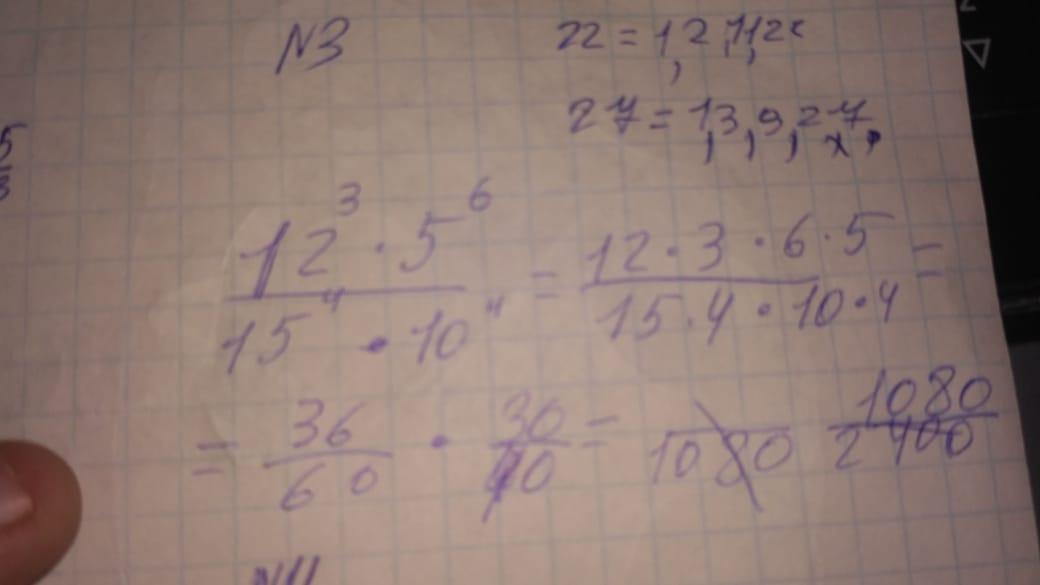 N3
22 = 1, 2, 11, 22
27 = 1, 3, 9, 27
5
12³ · 5⁶ / 15⁴ · 10⁴ = 12 · 3 · 6 · 5 / 15 · 4 · 10 · 4 =
= 36 / 60 · 30 / 40 = 1080 1080 / 2400
N4